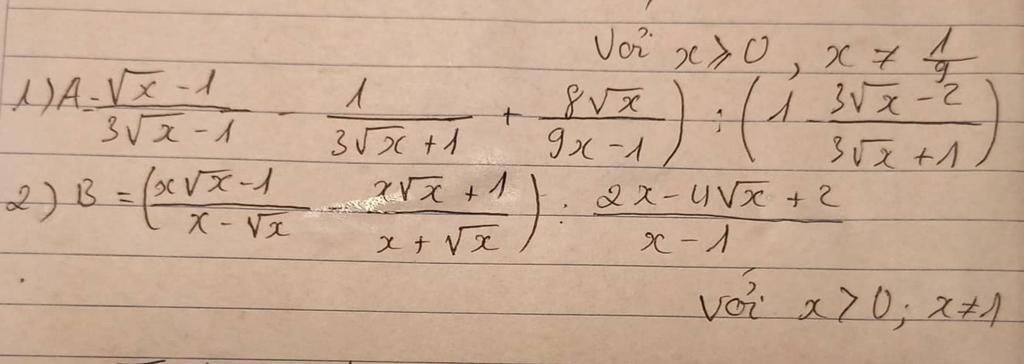 Với x ⩾ 0, x ≠ 1/9
1) A = (√x - 1)/(3√x - 1) - 1/(3√x + 1) + (8√x)/(9x - 1)) : (1 (3√x - 2)/(3√x + 1))
2) B = ((x√x - 1)/(x - √x) - (x√x + 1)/(x + √x)) : (2x - 4√x + 2)/(x - 1)
Với x > 0; x ≠ 1